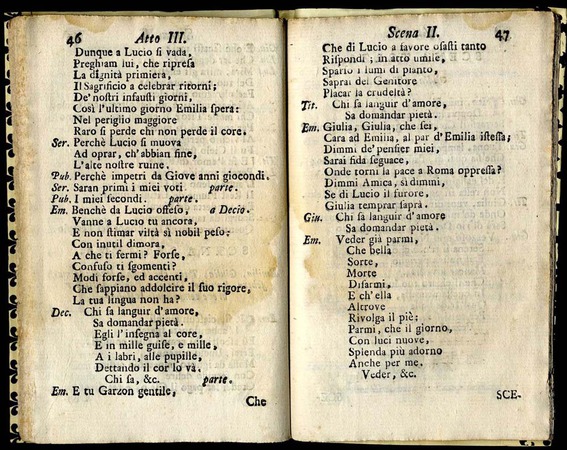 46 Atto III.
Dunque a Lucio si vada,
Preghiam lui, che ripresa
La dignità primiera,
Il Sagrificio a celebrar ritorni;
De' nostri infausti giorni,
Così l'ultimo giorno Emilia spera:
Nel periglio maggiore
Raro si perde chi non perde il core.
Ser. Perchè Lucio si muova
Ad oprar, ch'abbian fine,
L'alte nostre ruine.
Pub. Perchè impetri da Giove anni giocondi.
Ser. Saran primi i miei voti parte.
Pub. I miei secondi. parte.
Em. Benchè da Lucio offeso, a Decio.
Vanne a Lucio tu ancora,
E non stimar viltà sì nobil peso:
Con inutil dimora,
A che ti fermi? Forse,
Confuso ti sgomenti?
Modi forse, ed accenti,
Che sappiano addolcire il suo rigore,
La tua lingua non ha?
Dec. Chi sa languir d'amore,
Sa domandar pietà.
Egli l'insegna al core,
E in mille guise, e mille,
A i labri, alle pupille,
Dettando il cor lo va.
Chi sa, &c. parte.
Em. E tu Garzon gentile,
Che
Scena II. 47
Che di Lucio a favore osasti tanto
Rispondi; in atto umile,
Sparso i lumi di pianto,
Saprai del Genitore
Placar la crudeltà?
Tit. Chi sa languir d'amore,
Sa domandar pietà.
Em. Giulia, Giulia, che sei,
Cara ad Emilia, al par d'Emilia istessa;
Dimmi de' pensier miei,
Sarai fida seguace,
Onde torni la pace a Roma oppressa?
Dimmi Amica, sì dimmi,
Se di Lucio il furore,
Giulia temprar saprà.
Giu. Chi sa languir d'amore
Sa domandar pietà.
Em. Veder già parmi,
Che bella
Sorte,
Morte
Disarmi,
E ch'ella
Altrove
Rivolga il piè:
Parmi, che il giorno,
Con luci nuove,
Spienda più adorno
Anche per me.
Veder, &c.
SCE-